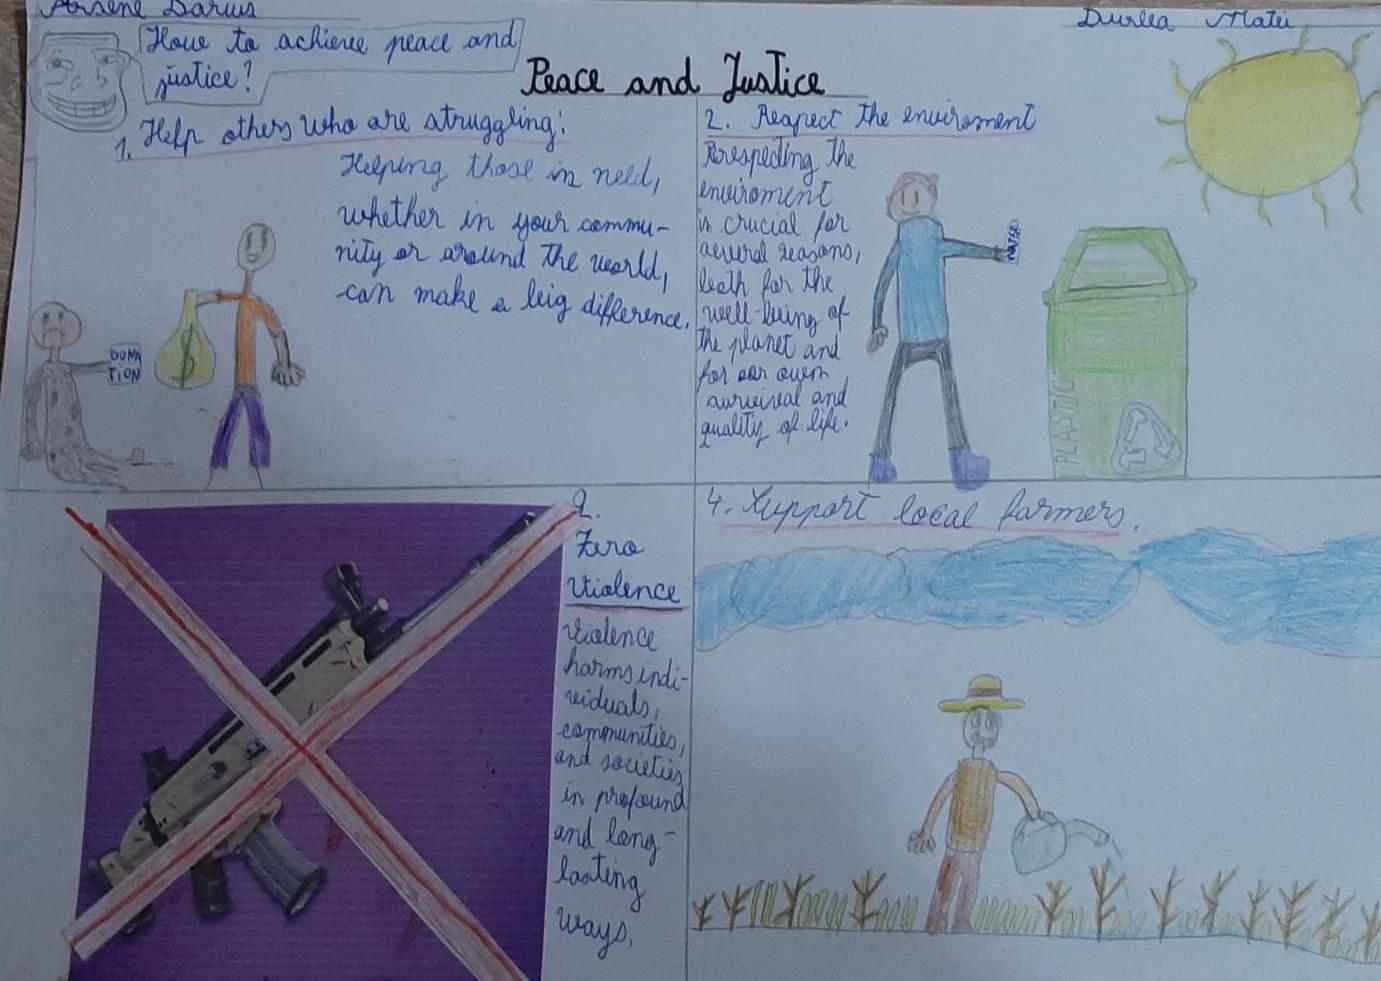 Arsene Darius
Durlea Matei
How to achieve peace and
justice?
Peace and Justice
1. Help others who are struggling:
Helping those in need,
whether in your commu-
nity or around the world,
can make a big difference.
DONA
TION
$
2. Respect the enviroment
Rrespecting the
enviroment
is crucial for
several reasons,
both for the
well-being of
the planet and
for our own
survival and
quality of life.
PLASTIC
Zero
Violence
Violence
harms indi-
viduals,
communities,
and societies
in profound
and long-
lasting
ways.
4. Support local farmers.